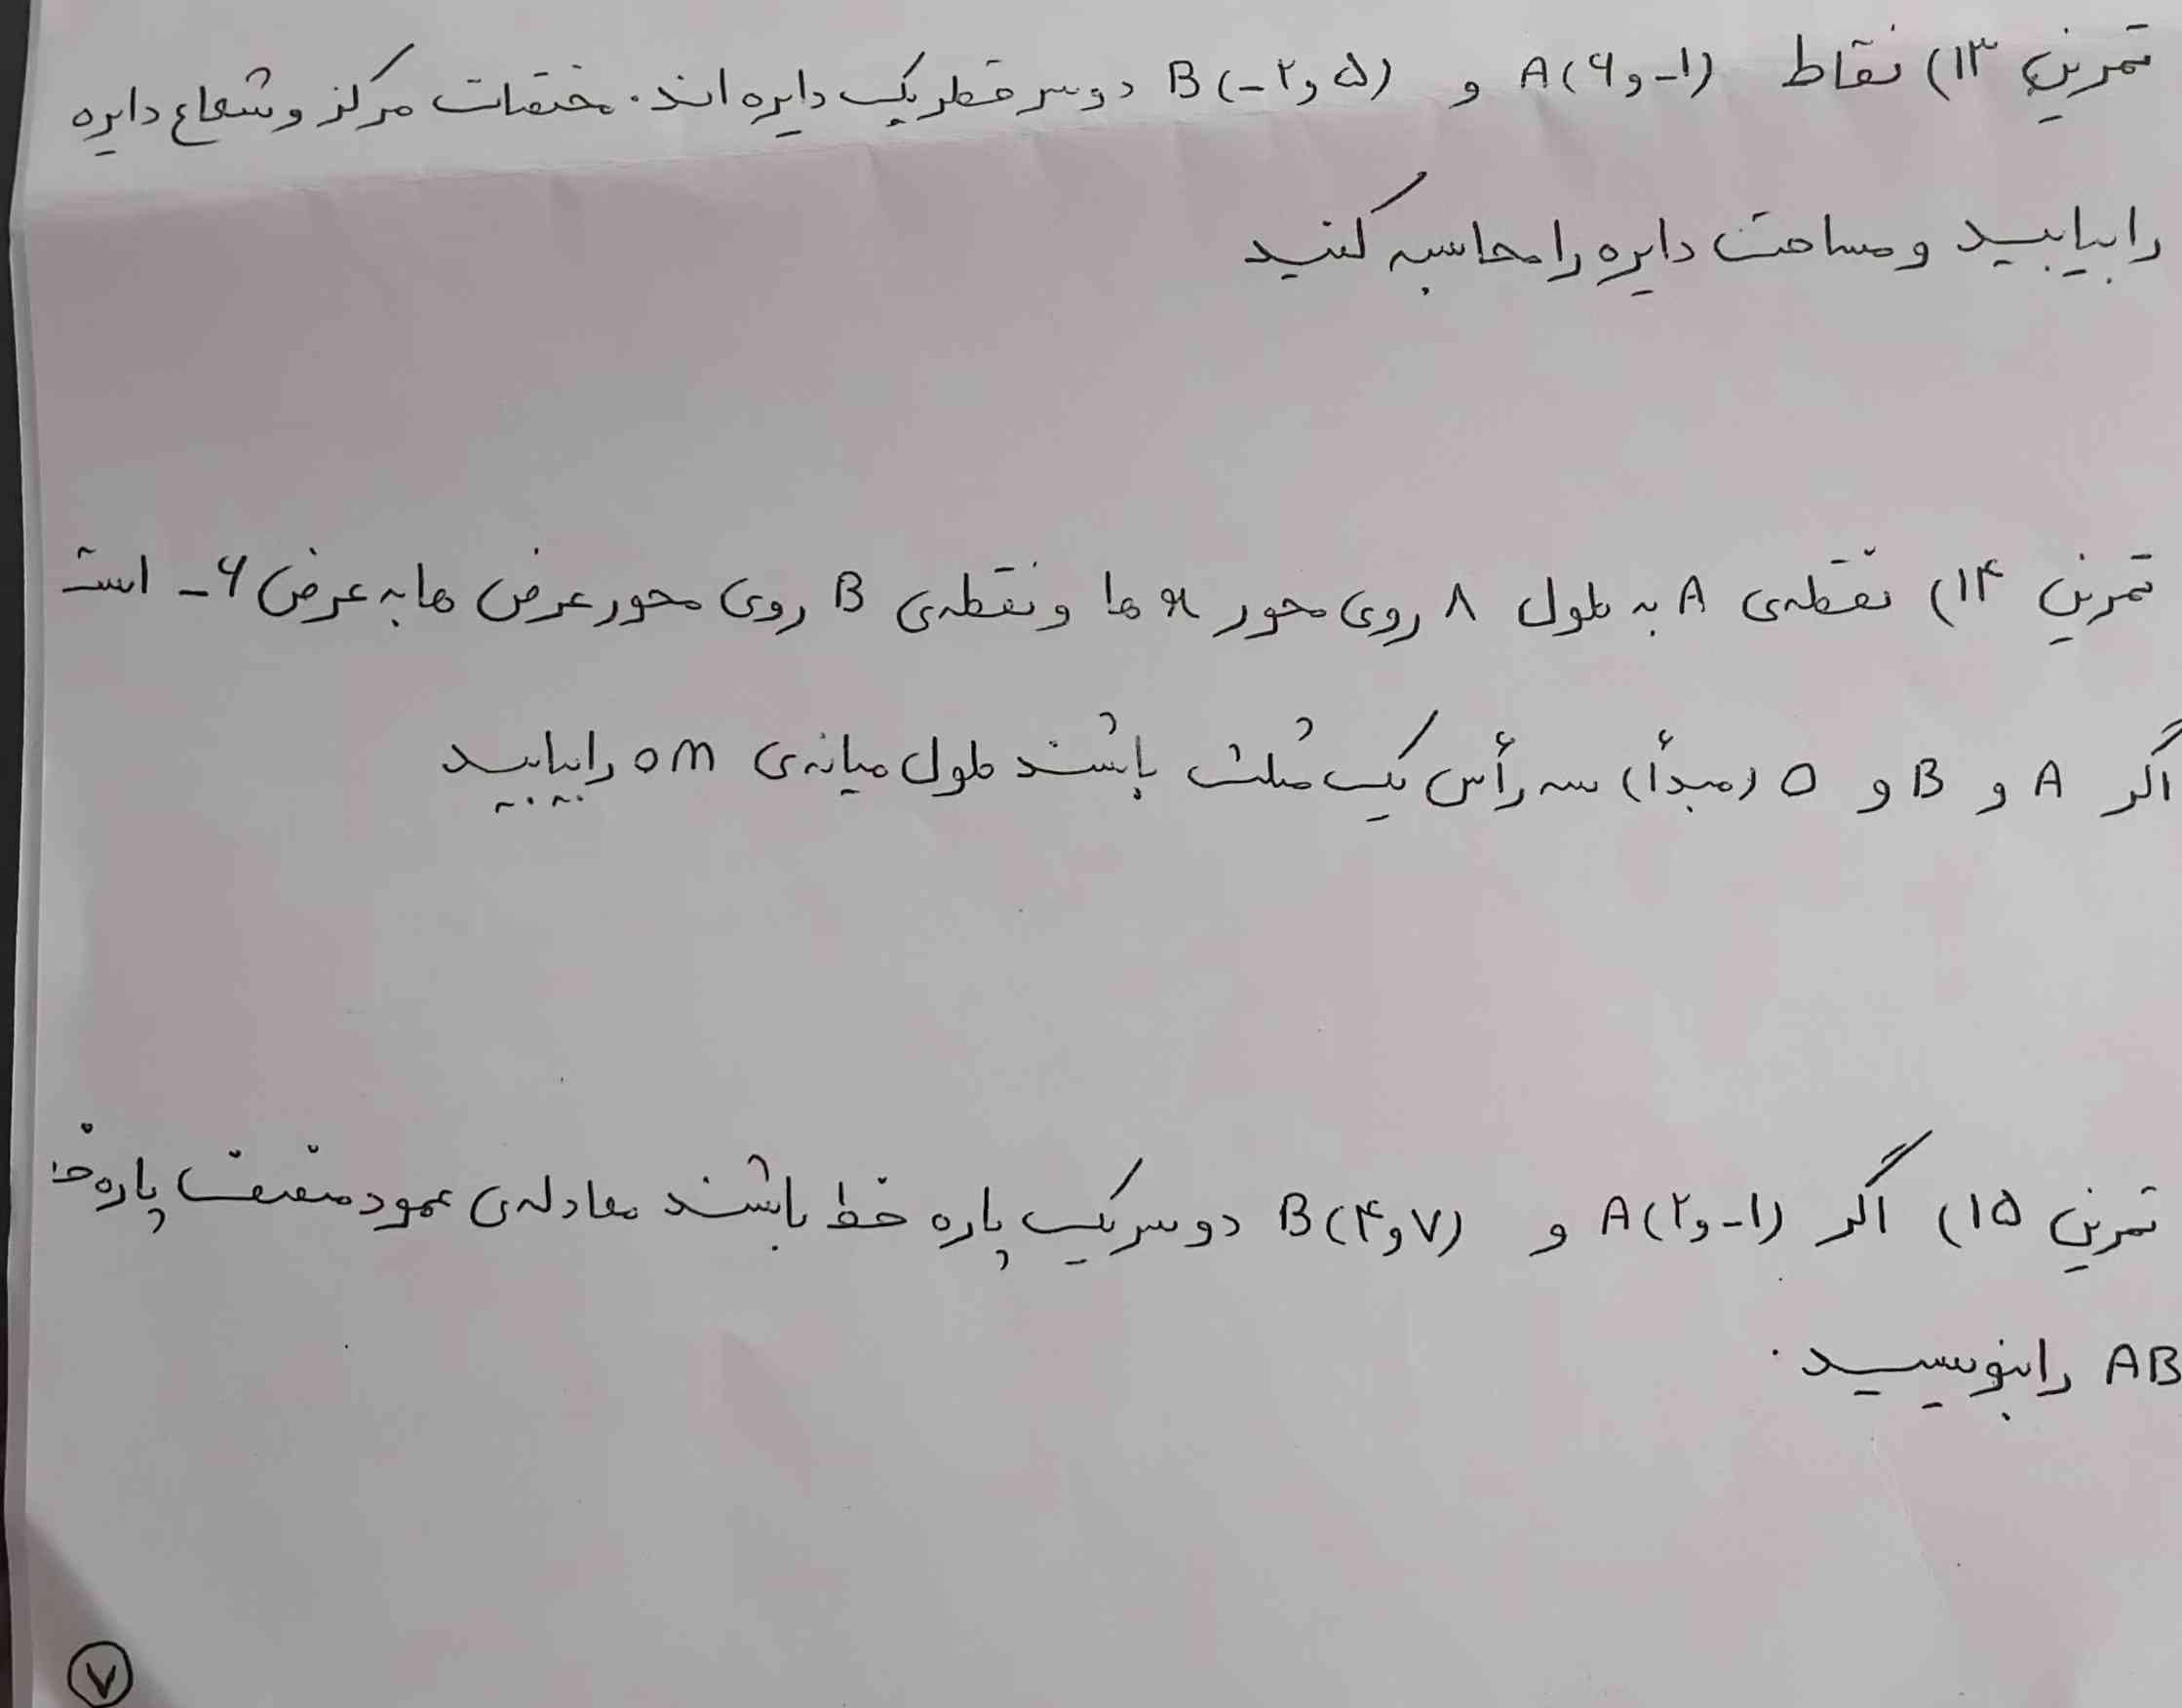 تمرین ۱۳) نقاط A(۶و-۱) و B(-۲و۵) دوسر قطر یک دایره اند. مختصات مرکز و شعاع دایره
را بیابید و مساحت دایره را محاسبه کنید
تمرین ۱۴) نقطه‌ی A به طول ۸ روی محور x ها و نقطه‌ی B روی محور عرض ها به عرض ۶- است
اگر A و B و O (مبدأ) سه رأس یک مثلث باشند طول میانه‌ی OM را بیابید
تمرین ۱۵) اگر A(۲و-۱) و B(۴و۷) دوسر یک پاره خط باشند معادله‌ی عمود منصف پاره خط
AB را بنویسید.
۷